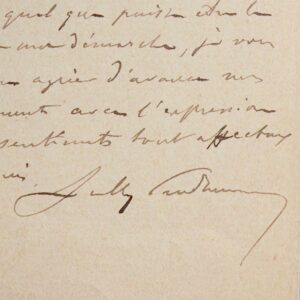 quel que puisse être le
ma démarche, je vous
agréer d'avance mes
ments avec l'expression
sentiments tout affectueux
Sully Prudhomme